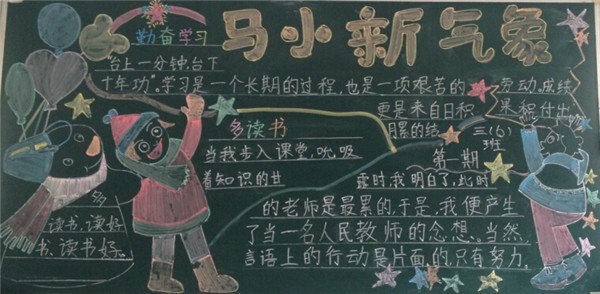 勤奋学习
马小新气象
"台上一分钟,台下
十年功"学习是一个长期的过程,也是一项艰苦的
劳动。成绩
更是来自日积
果,积
月累的结
三(6)
班
多读书
第一期
当我步入课堂,吮吸
着知识的甘
露时,我明白了,此时
的老师是最累的,于是,我便产生
了当一名人民教师的念想。当然
言语上的行动是片面的,只有努力
多
读书,读好
书、读书好。